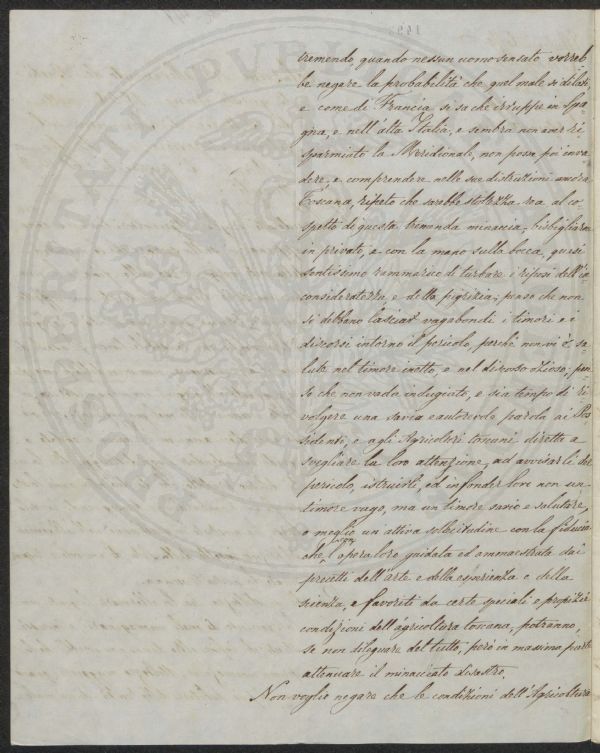 tremendo, quando nessun uomo sensato vorreb-
be negare la probabilità che quel male si dilati,
e come di Francia si sa che irruppe in Spa-
gna, e nell'alta Italia, e sembra non aver ri-
sparmiato la Meridionale, non possa poi inva-
dere, e comprendere nelle sue distruzioni ancora
Toscana, ripeto che sarebbe stoltezza sea al co-
spetto di questa tremenda minaccia, bisbigliarne
in privato, e con la mano sulla bocca, quasi
sentissimo rammarico di turbare i riposi dell'in-
consideratezza, e della pigrizia; penso che non
si debbano lasciar vagabondi i timori e i
discorsi intorno il pericolo, perchè non vi è sa-
lute nel timore inetto, e nel discorso ozioso; pen-
so che non vada indugiato, e sia tempo di ri-
volgere una savia e autorevole parola ai Pos-
sidenti, e agli Agricoltori toscani diretta a
svegliare la loro attenzione, ad avvisarli del
pericolo, istruirli, ed infonder loro non un
timore vago, ma un timore savio e salutare,
o meglio un'attiva solecitudine con la fiducia
che, con l'opera loro guidata ed ammaestrata dai
precetti dell'arte e della esperienza e della
scienza, e favoriti da certe speciali e propizie
condizioni dell'agricoltura toscana, potranno,
se non dileguare del tutto, però in massima parte
attenuare il minacciato disastro.
Non voglio negare che le condizioni dell'Agricoltura